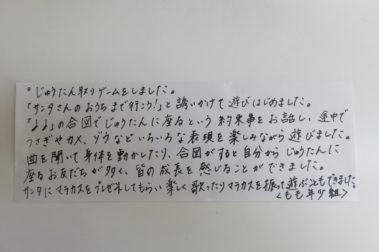 ・じゅうたん取りゲームをしました。
「サンタさんのおうちまで行こう!」と誘いかけて遊びはじめました。
「♩♩」の合図でじゅうたんに座るという約束事をお話し、途中で
うさぎやカメ、ゾウなどいろいろな表現を楽しみながら遊びました。
曲を聞いて身体を動かしたり、合図がすると自分からじゅうたんに
座るお友だちが多く、皆の成長を感じることができました。
サンタにマラカスをプレゼントしてもらい楽しく歌ったりマラカスを振って遊ぶこともできました
<もも年少組>